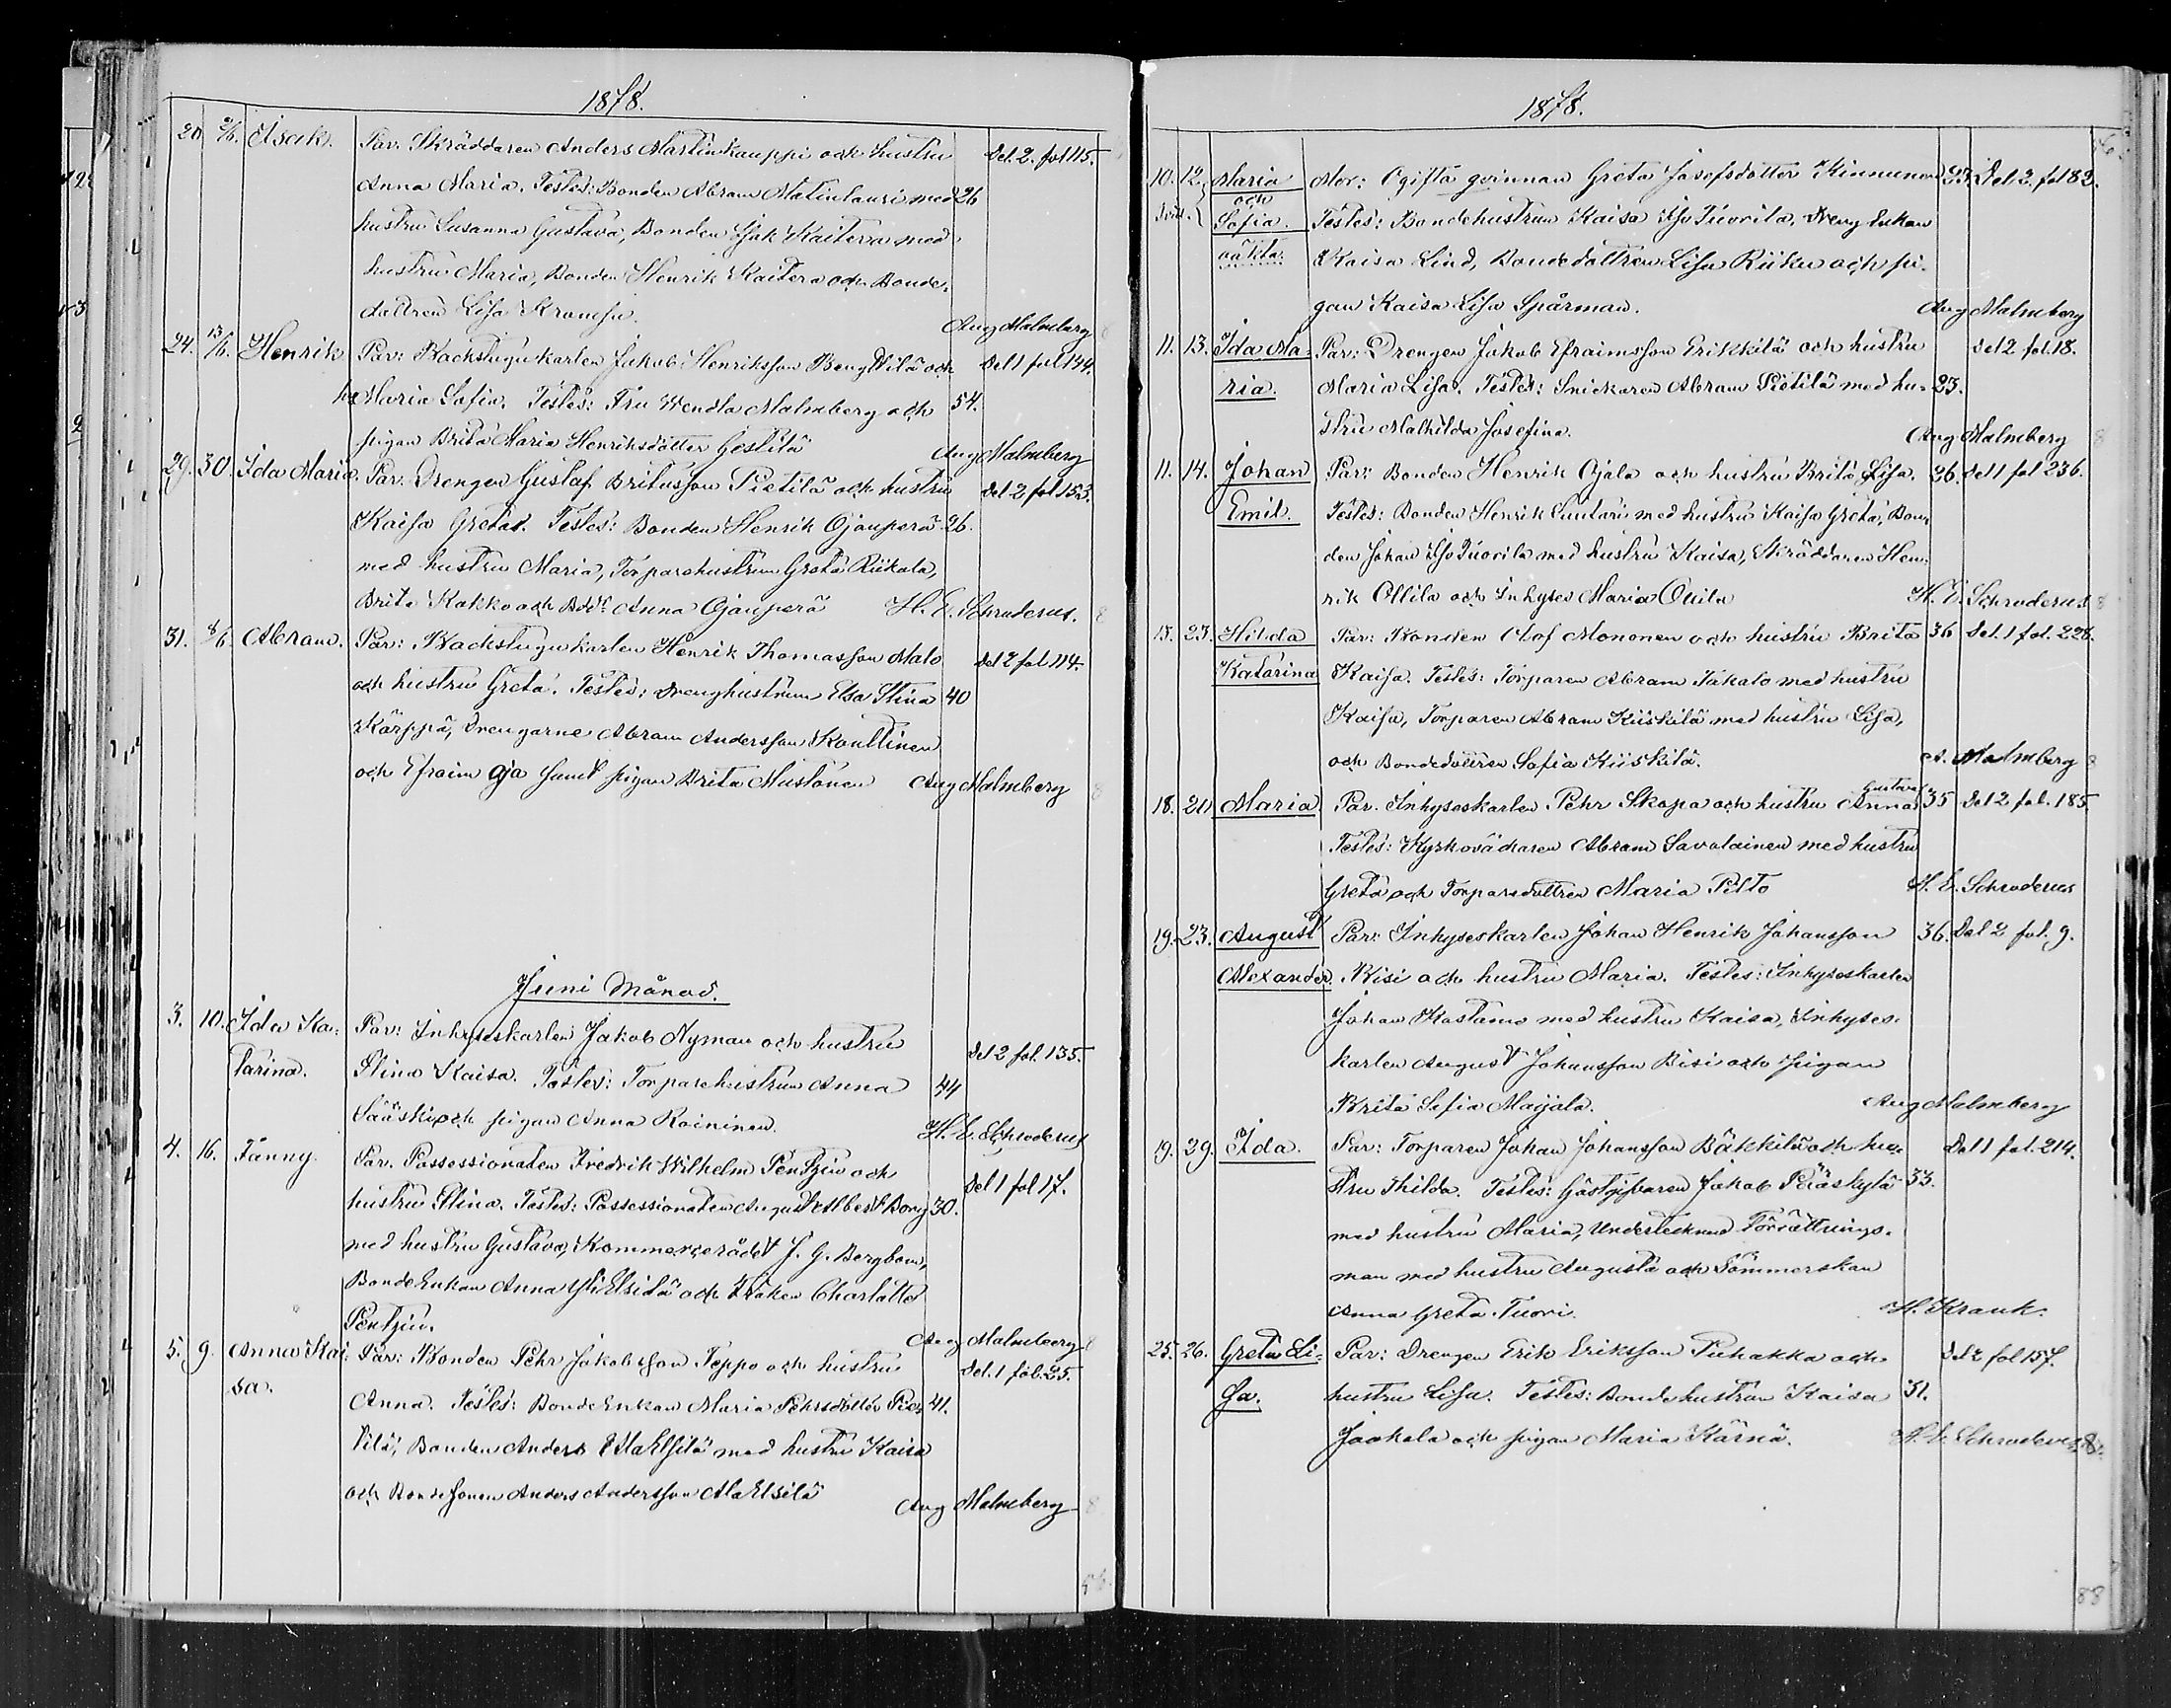 1878.
20 2/6. Isack. Par. Skräddaren Anders Martinkauppi och hustru Del. 2. fol 115.
Anna Maria. Testes: Bonden Abram Matinlauri med 26
hustru Susanna Gustava, Bonden Isak Kaitera med
hustru Maria, Bonden Henrik Kaitera och Bonde-
dottren Lisa
Aug Malmberg
24. 13/6. Henrik Par: Backstugukarlen Jakob Henriksson och Del 1 fol 144.
h. Maria Sofia. Testes: Fru Wendla Malmberg och 54.
pigan Brita Maria Henriksdotter Gestilä Aug Malmberg
29. 30. Ida Maria. Par. Drengen Gustaf Britusson Pietilä och hustru Del 2 fol 153.
Kaisa Greta. Testes: Bonden Henrik Ojanperä 26.
med hustru Maria, Torparehustrun Greta Riikola,
Brita Kokko och Bdd: Anna Ojanperä H. E. Schroderus.
31. 8/6. Abram. Par: Backstugukarlen Henrik Thomasson Malo Del 2 fol 114.
och hustru Greta. Testes: Drenghustrun Elsa Stina 40
Kärppä, Drengarne Abram Andersson Konttinen
och Efraim Oja samt pigan Brita Mustonen Aug Malmberg
Juni Månad.
3. 10. Ida Ka- Par: Inhyseskarlen Jakob Nyman och hustru Del 2 fol. 135.
tarina. Stina Kaisa. Testes: Torparehustrun Anna 44
Sääski och pigan Anna Roininen. H. E. Schroderus
4. 16. Fanny. Par. Possessionaten Fredrik Wilhelm Pentzin och Del 1 fol 17.
hustru Stina. Testes: Possessionaten August Albert Borg 30.
med hustru Gustava, Kommerserådet J. G. Bergbom,
Bonde Enkan Anna Yli Elsilä och Fröken Charlotte
Pentzin. Aug Malmberg
5. 9. Anna Kai- Par: Bonden Pehr Jakobsson Teppo och hustru Del. 1 fol. 25.
sa. Anna. Testes: Bonde Enkan Maria Pehrsdotter Pie- 41.
tilä, Bonden Anders Ala Elsilä med hustru Kaisa
och Bondesonen Anders Andersson Ala Elsilä Aug Malmberg
56.
1878.
10. 12. Maria Mor: Ogifta qvinnan Greta Josefsdotter Kinnunen 23. Del. 2. fol 82.
och
Sofia. Testes: Bondehustrun Kaisa Iso Tuovila, Dreng Enkan
oäkta. Kaisa Lind, Bondedottren Lisa Riiku och pi-
gan Kaisa Lisa Spårman. Aug Malmberg
11. 13. Ida Ma- Par: Drengen Jakob Efraimsson Erikkilä och hustru Del 2 fol. 18.
ria. Maria Lisa. Testes: Snickaren Abram Pietilä med hu- 23.
stru Mathilda Josefina. Aug Malmberg
11. 14. Johan Par: Bonden Henrik Ojala och hustru Brita Lisa. 36. Del 1 fol 236.
Emil. Testes: Bonden Henrik Luutari med hustru Kaisa Greta, Bon-
den Johan Iso Tuovila med hustru Kaisa, Skräddaren Hen-
rik Ollila och Inhyses Maria Ollila H. E. Schroderus
15. 23. Hilda Par: Bonden Olof Mononen och hustru Brita 36 Del. 1 fol. 228.
Katarina Kaisa. Testes: Torparen Abram Takalo med hustru
Kaisa, Torparen Abram Kiiskilä med hustru Lisa,
och Bondedottren Sofia Kiiskilä. A. Malmberg
Gustava
18. 20 Maria. Par. Inhyseskarlen Pehr Skopa och hustru Anna 35 Del 2 fol. 185.
Testes: Kyrkoväktaren Abram Savolainen med hustru
Greta och Torparedottren Maria Pitto H. E. Schroderus
19. 23. August Par: Inhyseskarlen Johan Henrik Johansson 36. Del 2 fol. 9.
Alexander. Bisi och hustru Maria. Testes: Inhyseskarlen
Johan Kastamo med hustru Kaisa, Inhyses-
karlen August Johansson Bisi och pigan
Brita Sofia Maijala. Aug Malmberg
19. 29. Ida. Par: Torparen Johan Johansson Bäkkilä och hu- Del 1 fol. 214.
stru Thilda. Testes: Gästgifvaren Jakob Pääskylä 33.
med hustru Maria, Undertecknad Förrättnings-
man med hustru Augusta och Sömmerskan
Anna Greta Tuovi. H. Krank.
25. 26. Greta Li- Par: Drengen Erik Eriksson Puhakka och Del 2 fol 157.
sa. hustru Lisa. Testes: Bondehustrun Kaisa 31.
Jaakola och pigan Maria Kärnä. H. E. Schroderus
88